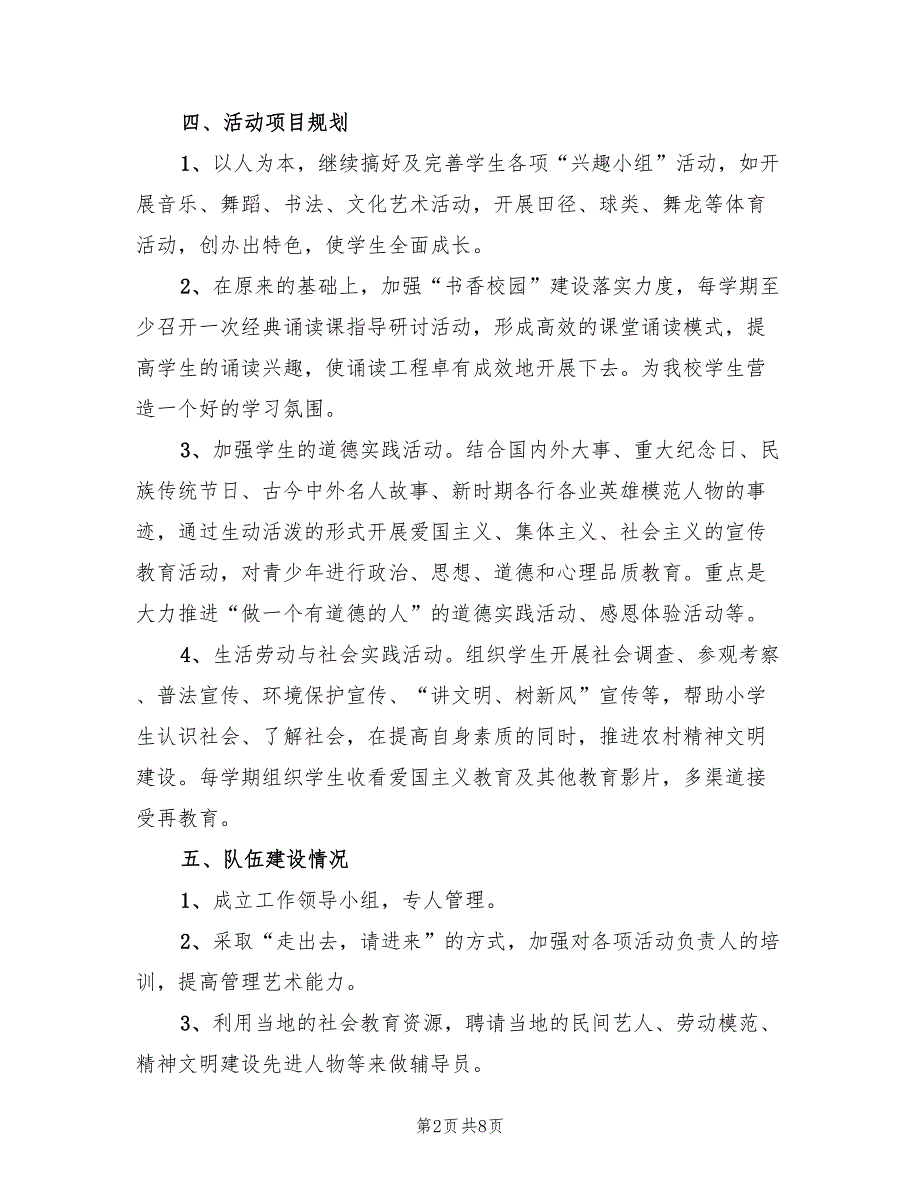 四、活动项目规划
1、以人为本，继续搞好及完善学生各项“兴趣小组”活动，如开
展音乐、舞蹈、书法、文化艺术活动，开展田径、球类、舞龙等体育
活动，创办出特色，使学生全面成长。
2、在原来的基础上，加强“书香校园”建设落实力度，每学期至
少召开一次经典诵读课指导研讨活动，形成高效的课堂诵读模式，提
高学生的诵读兴趣，使诵读工程卓有成效地开展下去。为我校学生营
造一个好的学习氛围。
3、加强学生的道德实践活动。结合国内外大事、重大纪念日、民
族传统节日、古今中外名人故事、新时期各行各业英雄模范人物的事
迹，通过生动活泼的形式开展爱国主义、集体主义、社会主义的宣传
教育活动，对青少年进行政治、思想、道德和心理品质教育。重点是
大力推进“做一个有道德的人”的道德实践活动、感恩体验活动等。
4、生活劳动与社会实践活动。组织学生开展社会调查、参观考察
、普法宣传、环境保护宣传、“讲文明、树新风”宣传等，帮助小学
生认识社会、了解社会，在提高自身素质的同时，推进农村精神文明
建设。每学期组织学生收看爱国主义教育及其他教育影片，多渠道接
受再教育。
五、队伍建设情况
1、成立工作领导小组，专人管理。
2、采取“走出去，请进来”的方式，加强对各项活动负责人的培
训，提高管理艺术能力。
3、利用当地的社会教育资源，聘请当地的民间艺人、劳动模范、
精神文明建设先进人物等来做辅导员。
第2页 共8页